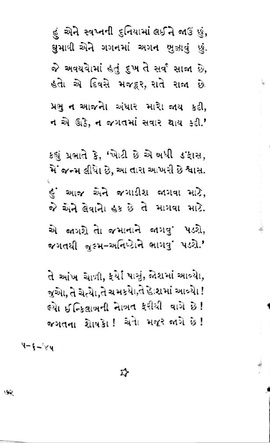 હું એને સ્વપ્નની દુનિયામાં લઈને જાઉં છું,
ઘુમાવી એને ગગનમાં અગન ભુઝાવું છું.
જે અવયવોમાં હતું દુખ તે સર્વ સાજા છે,
હતો એ દિવસે મજદૂર, રાતે રાજા છે.
પ્રભુ ન આજનો અંધાર મારો જાય કદી,
ન એ ઊઠે, ન જગતમાં સવાર થાય કદી.'
કહ્યું પ્રભાતે કે, 'ખોટી છે એ બધી ડંફાસ,
મેં જન્મ લીધો છે, આ તારા આખરી છે શ્વાસ.
હું આજ એને જગાડીશ જાગવા માટે,
જે એને લેવાનો હક છે તે માગવા માટે.
એ જાગશે તો જમાનાને જાગવું પડશે,
જગતથી જુલ્મ-અનિષ્ટોને ભાગવું પડશે.'
તે આંખ ચોળી, ફર્યો પાસું, જોશમાં આવ્યો,
જુઓ, તે ચેત્યો, તે ચમક્યો, તે હોશમાં આવ્યો!
લ્યો ઈન્કિલાબની નોબત ફરીથી વાગે છે!
જગતના શોષકો! ચેતો મજૂર જાગે છે!
૫-૬-'૪૫
૭૨